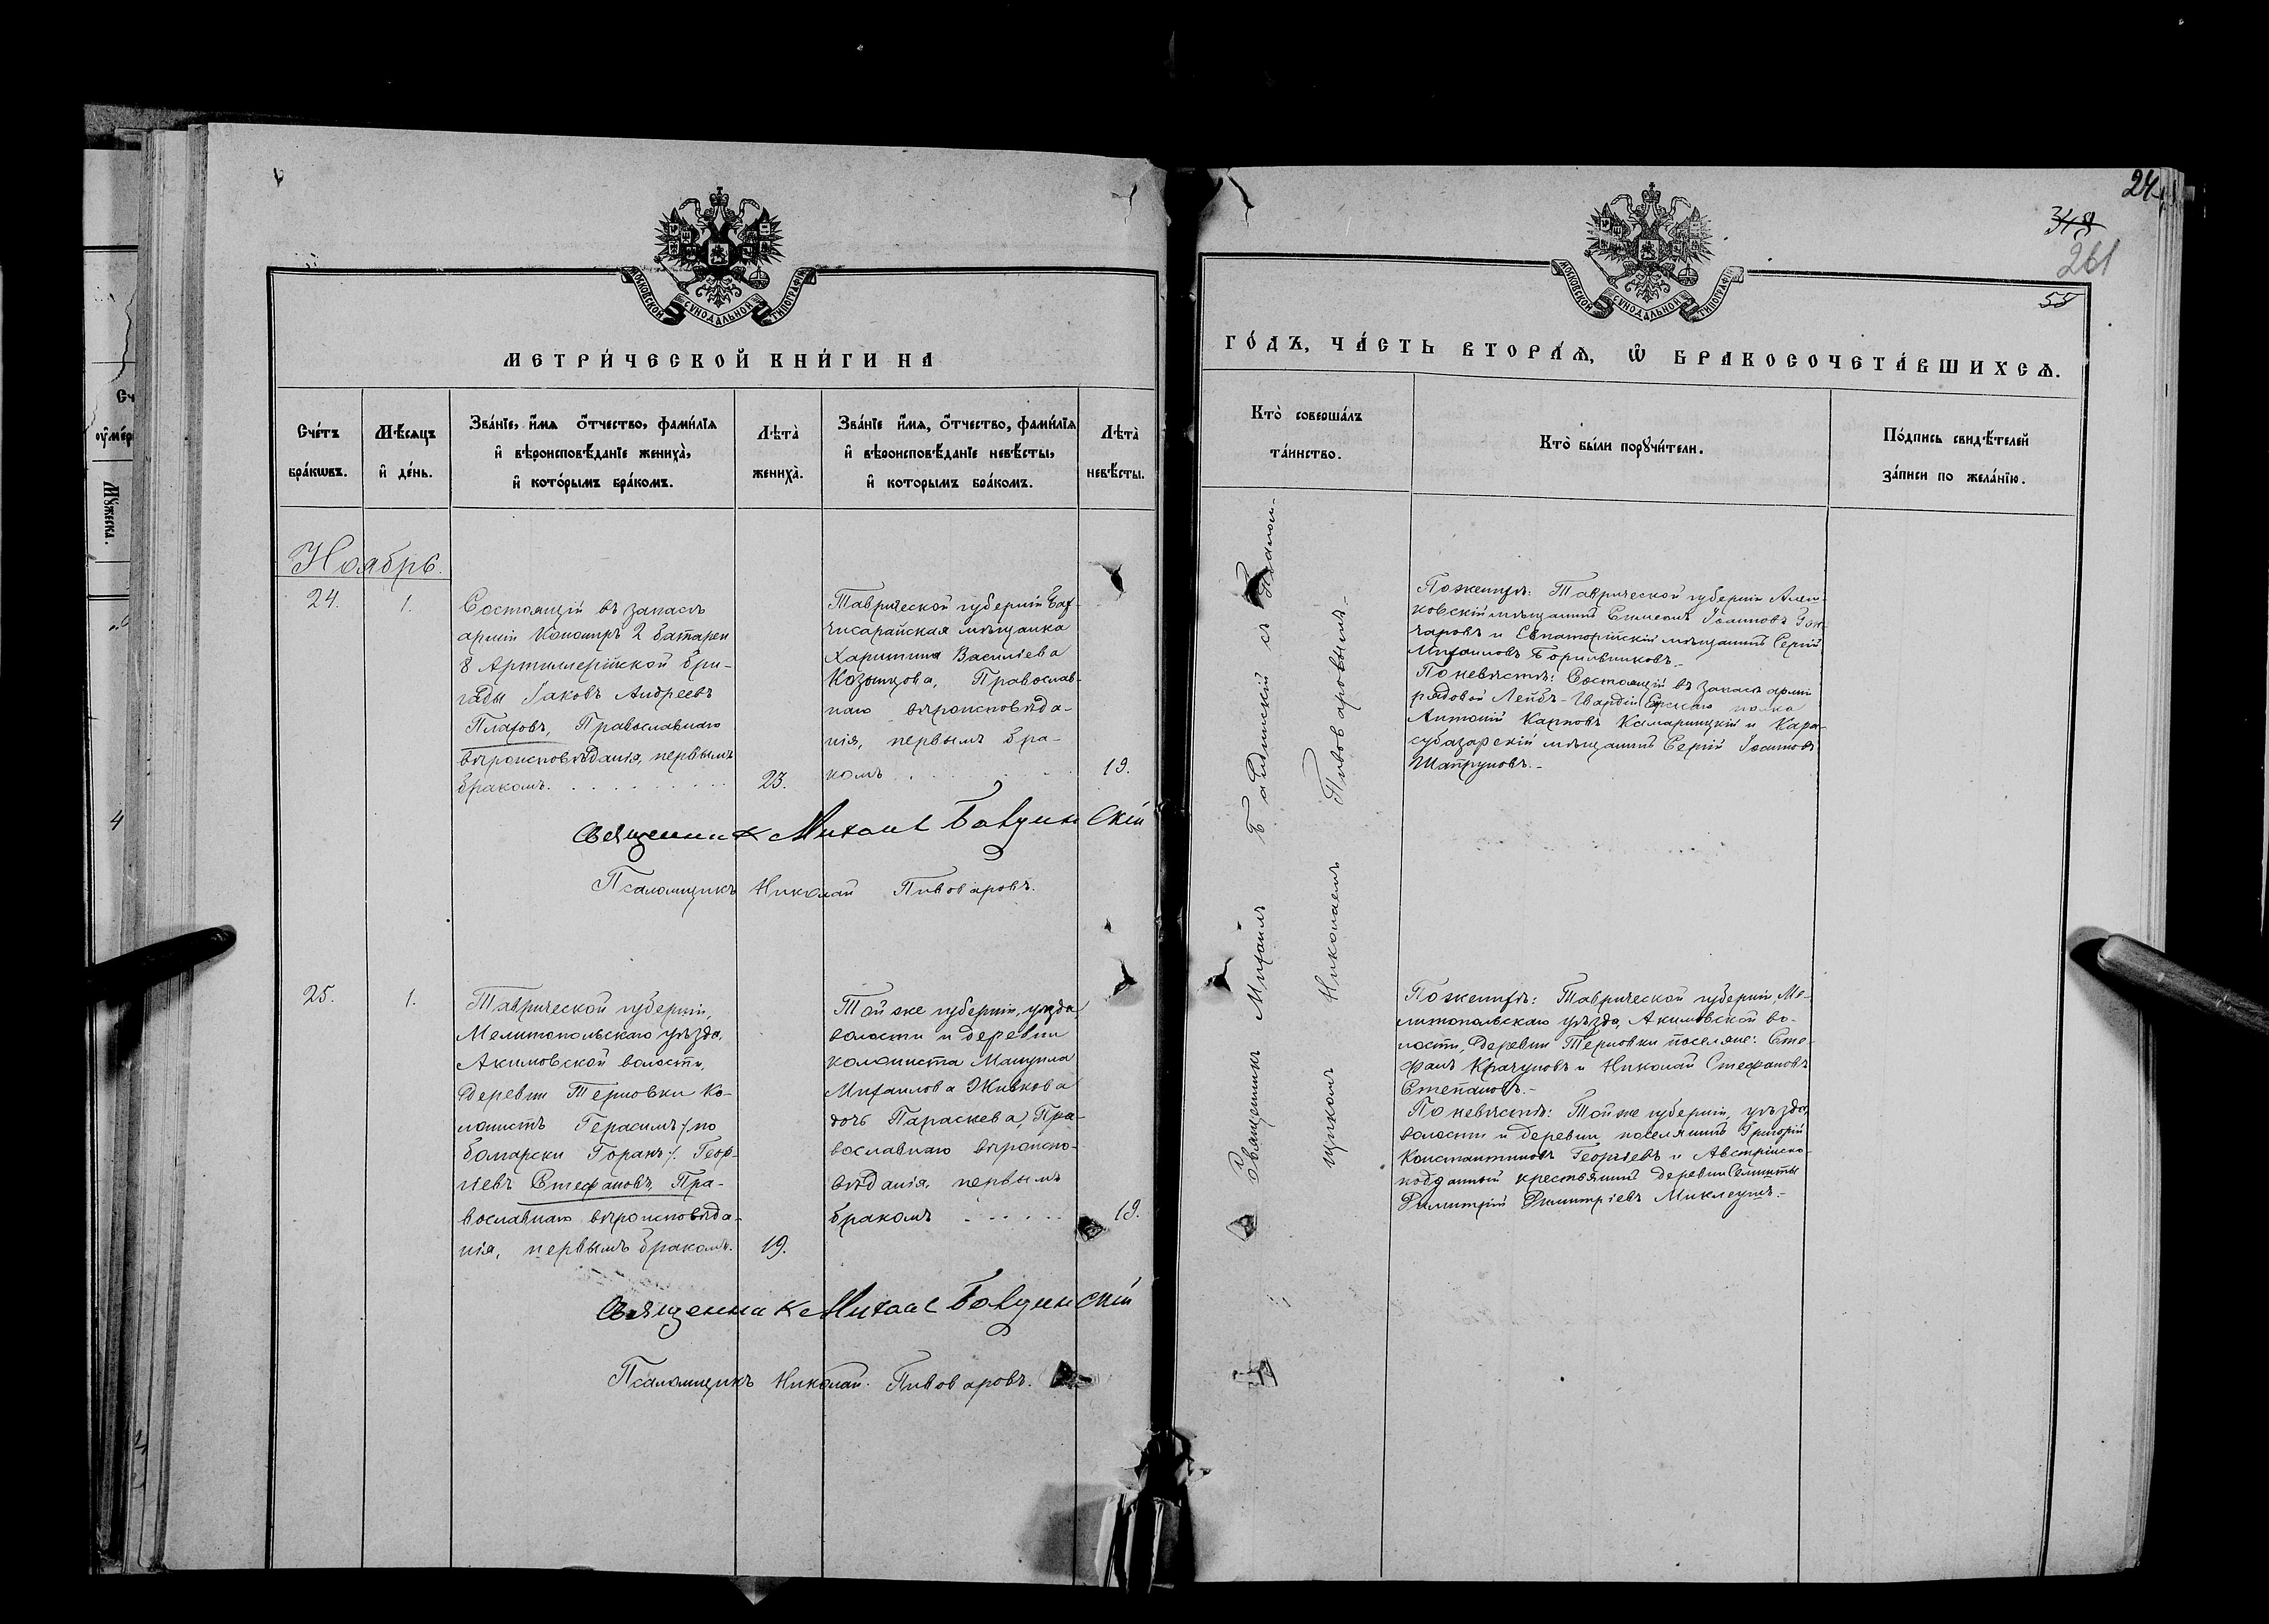 МОСКОВСКОЙ СѴНОДАЛЬНОЙ ТИПОГРАФІИ
МЕТРИ́ЧЕСКОЙ КНИ́ГИ НА
Сче́тъ бра́кѡвъ.
Мѣ́сяцъ и҆ де́нь.
Зва́нїе, и҆́мя ѻ҆́тчество, фами́лїя
и҆ вѣроисповѣ́данїе жениха̀,
и҆ кото́рымъ бра́комъ.
Лѣта̀ жениха̀.
Зва́нїе и҆́мя, ѻ҆́тчество, фами́лїя
и҆ вѣроисповѣ́данїе невѣ́сты,
и҆ которымъ бра́комъ.
Лѣта̀ невѣ́сты.
Ноябрь.
24.
1.
Состоящій въ запасѣ
арміи Канониръ 2 батареи
8 Артиллерійской бри-
гады Іаковъ Андреевъ
Плаховъ, Православнаго
вѣроисповѣданія, первымъ
бракомъ.
23.
Таврической губерніи Бах-
чисарайская мѣщанка
Харитина Василіева
Козынцова, Православ-
наго вѣроисповѣда-
нія, первымъ бра-
комъ
19.
Священник Михаил Бавдинскій
Псаломщикъ Николай Пивоваровъ.
25.
1.
Таврической губерніи,
Мелитопольскаго уѣзда,
Акимовской волости,
деревни Терновки ко-
лонистъ Герасимъ /:по
болгарски Горанъ:/ Геор-
гіевъ Стефановъ, Пра-
вославнаго вѣроисповѣда-
нія, первымъ бракомъ.
19.
Той же губерніи, уѣзда
волости и деревни
колониста Мануила
Михаилова Живкова
дочь Параскева, Пра-
вославнаго вѣроиспо-
вѣданія, первымъ
бракомъ
19.
Священник Михаил Бавдинскій
Псаломщикъ Николай Пивоваровъ.
24
348
261
55
МОСКОВСКОЙ СѴНОДАЛЬНОЙ ТИПОГРАФІИ
ГО́ДЪ, ЧА́СТЬ ВТОРА́Ѧ, Ѽ БРАКОСОЧЕТА́ВШИХСѦ.
Кто̀ соверша́лъ
та́инство.
Кто̀ бы́ли порꙋчи́тели.
По́дпись свидѣ́телей
за́писи по жела́нїю.
Священникъ Михаилъ Бавдинскій съ Псалом-
щикомъ Николаемъ Пивоваровымъ.
По женихѣ: Таврической губерніи Алеш-
ковскій мѣщанинъ Симеонъ Іоанновъ Гон-
чаровъ и Евпаторійскій мѣщанинъ Сергій
Михаиловъ
По невѣстѣ: Состоящій въ запасѣ арміи
рядовой Лейбъ-Гвардіи Егерскаго полка
Антоній Карповъ Камарницкій и Кара-
субазарскій мѣщанинъ Сергій Іоанновъ
Шапруновъ.-
По женихѣ: Таврической губерніи, Ме-
литопольскаго уѣзда, Акимовской во-
лости, деревни Терновки поселяне: Сте-
фанъ Крачуновъ и Николай Стефановъ
Степановъ.-
По невѣстѣ: Той же губерніи, уѣзда,
волости и деревни поселянинъ Григорій
Константиновъ Георгіевъ и Австрійско-
подданный крестьянинъ деревни
Димитрій Димитріевъ Миклеушъ.-